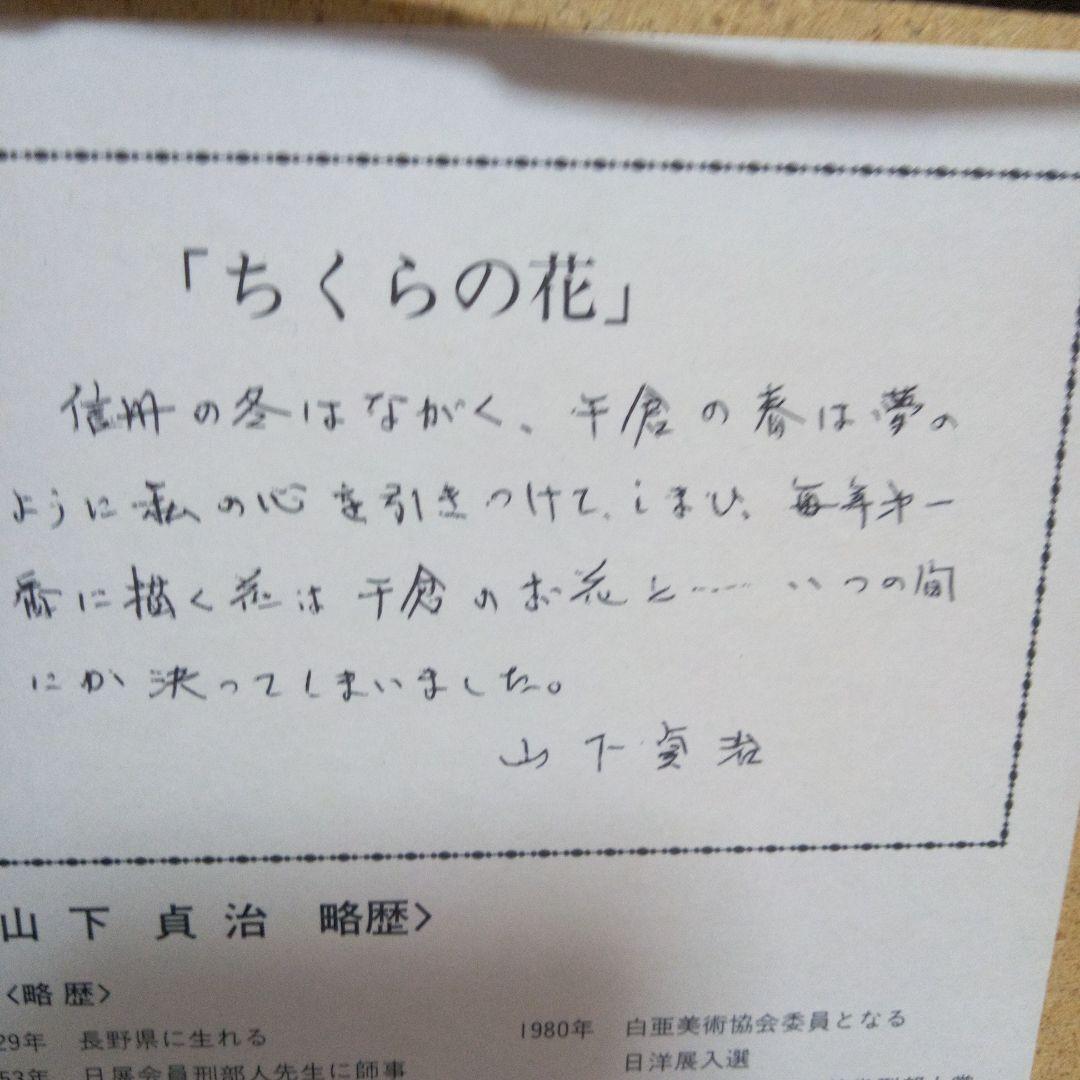 「ちくらの花」
信州の冬はながく、千倉の春は夢の
ように私の心を引きつけてしまい、毎年第一
番に描く花は千倉のお花と……いつの間
にか決ってしまいました。
山下貞治
山下 貞治 略歴>
<略歴>
29年 長野県に生れる
53年 日展会員刑部人先生に師事
1980年 白亜美術協会委員となる
日洋展入選